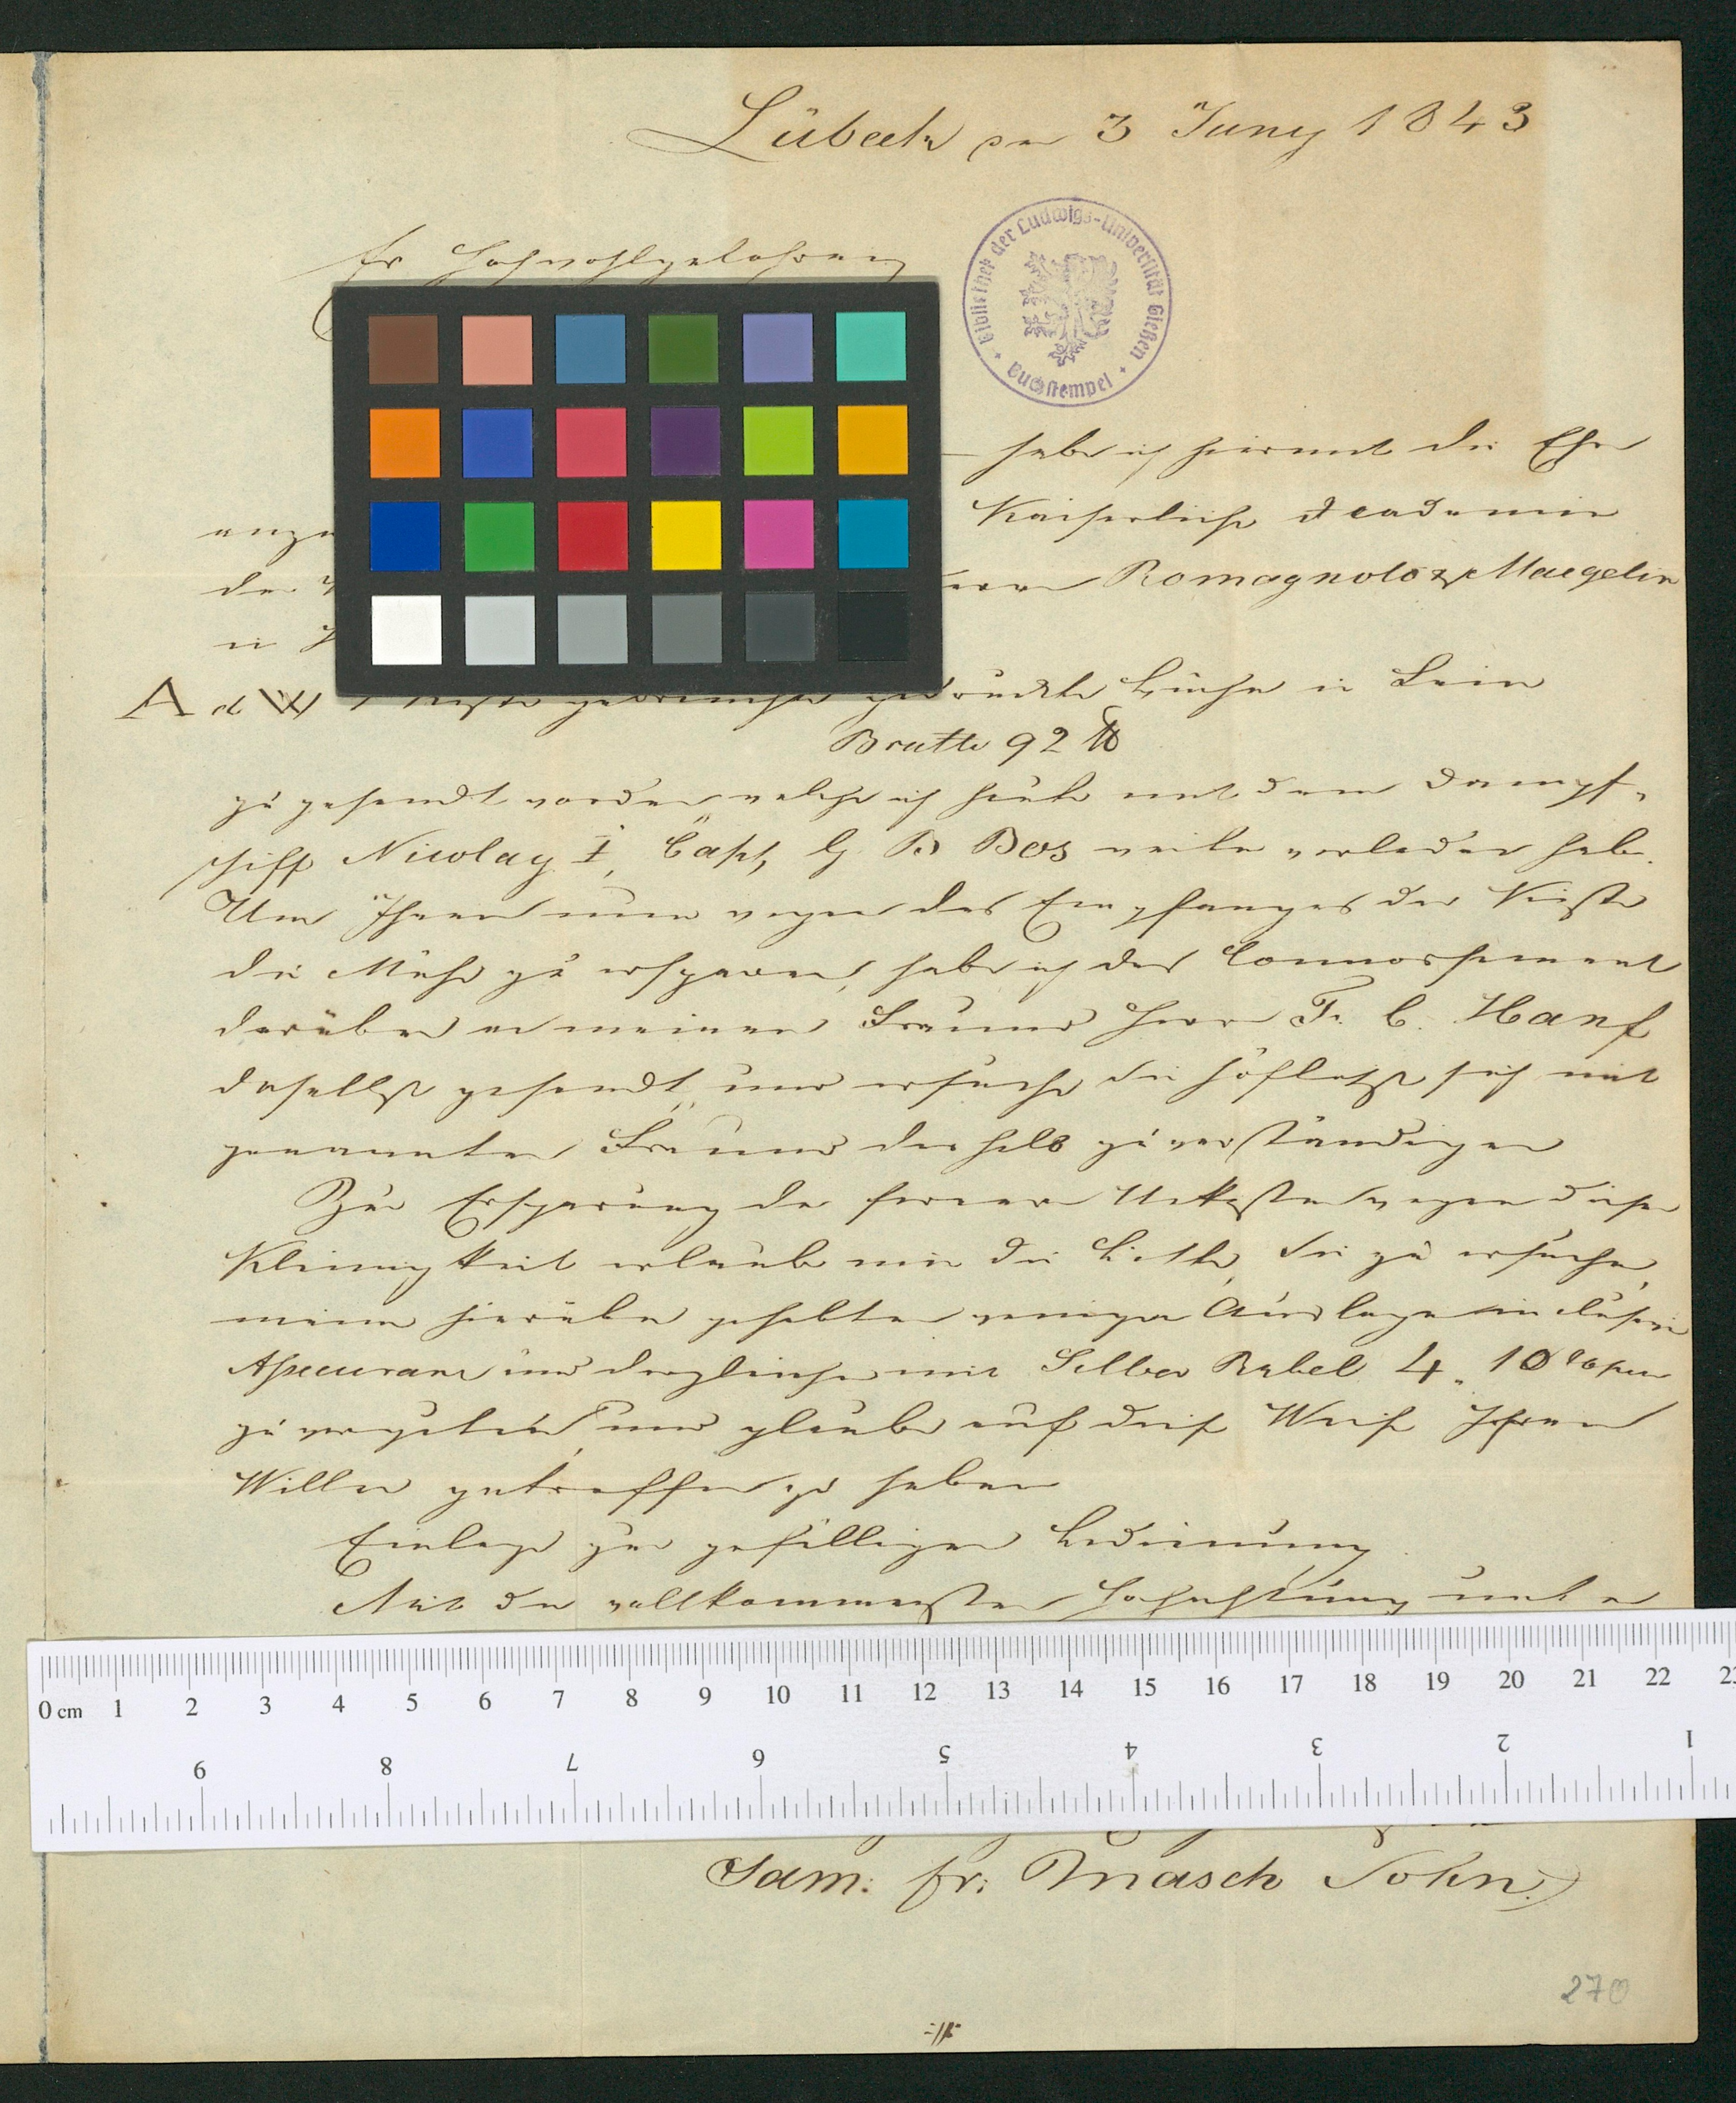 Lübeck den 3 Juny 1843
Bibliothek der Ludwigs-Universität Gießen
Buchstempel
Ew Hochwohlgebohren
habe ich hiermit die Ehre
Kaiserliche Academie
der Romagnolo & Maegelin
in
A d W 1 Kiste gebrauchte gedruckte Bücher in Leim
Brutto 92 ℔
zu gesandt worden welche ich heute mit dem Dampf-
schiff Nicolay I, Capt, G. B Bos weiter verladen habe.
Um Ihnen nun wegen des Empfanges der Kiste
die Mühe zu ersparen, habe ich das Connossement
darüber an meinen Freund Herrn Fr. C. Hanf
daselbst gesandt, und ersuche Sie höflichst sich mit
genannten Freund deshalb zu verständigen
Zur Ersparung der ferneren Unkosten wegen dieser
Kleinigkeit erlaube mir die Bitte, Sie zu ersuchen,
meine hierüber gehabten wenigen Auslagen inclusive
Assecuranz und dergleichen mit Silber Rubel 4, 10 Kopeken
zu vergüten, und glaube auf diese Weise Ihren
Willen getroffen zu haben
Einlage zur gefälligen Bedienung
Mit der vollkommensten Hochachtung unter
0 cm 1 2 3 4 5 6 7 8 9 10 11 12 13 14 15 16 17 18 19 20 21 22 23
9 8 7 6 5 4 3 2 1
Sam: fr: Masch Sohn.
270